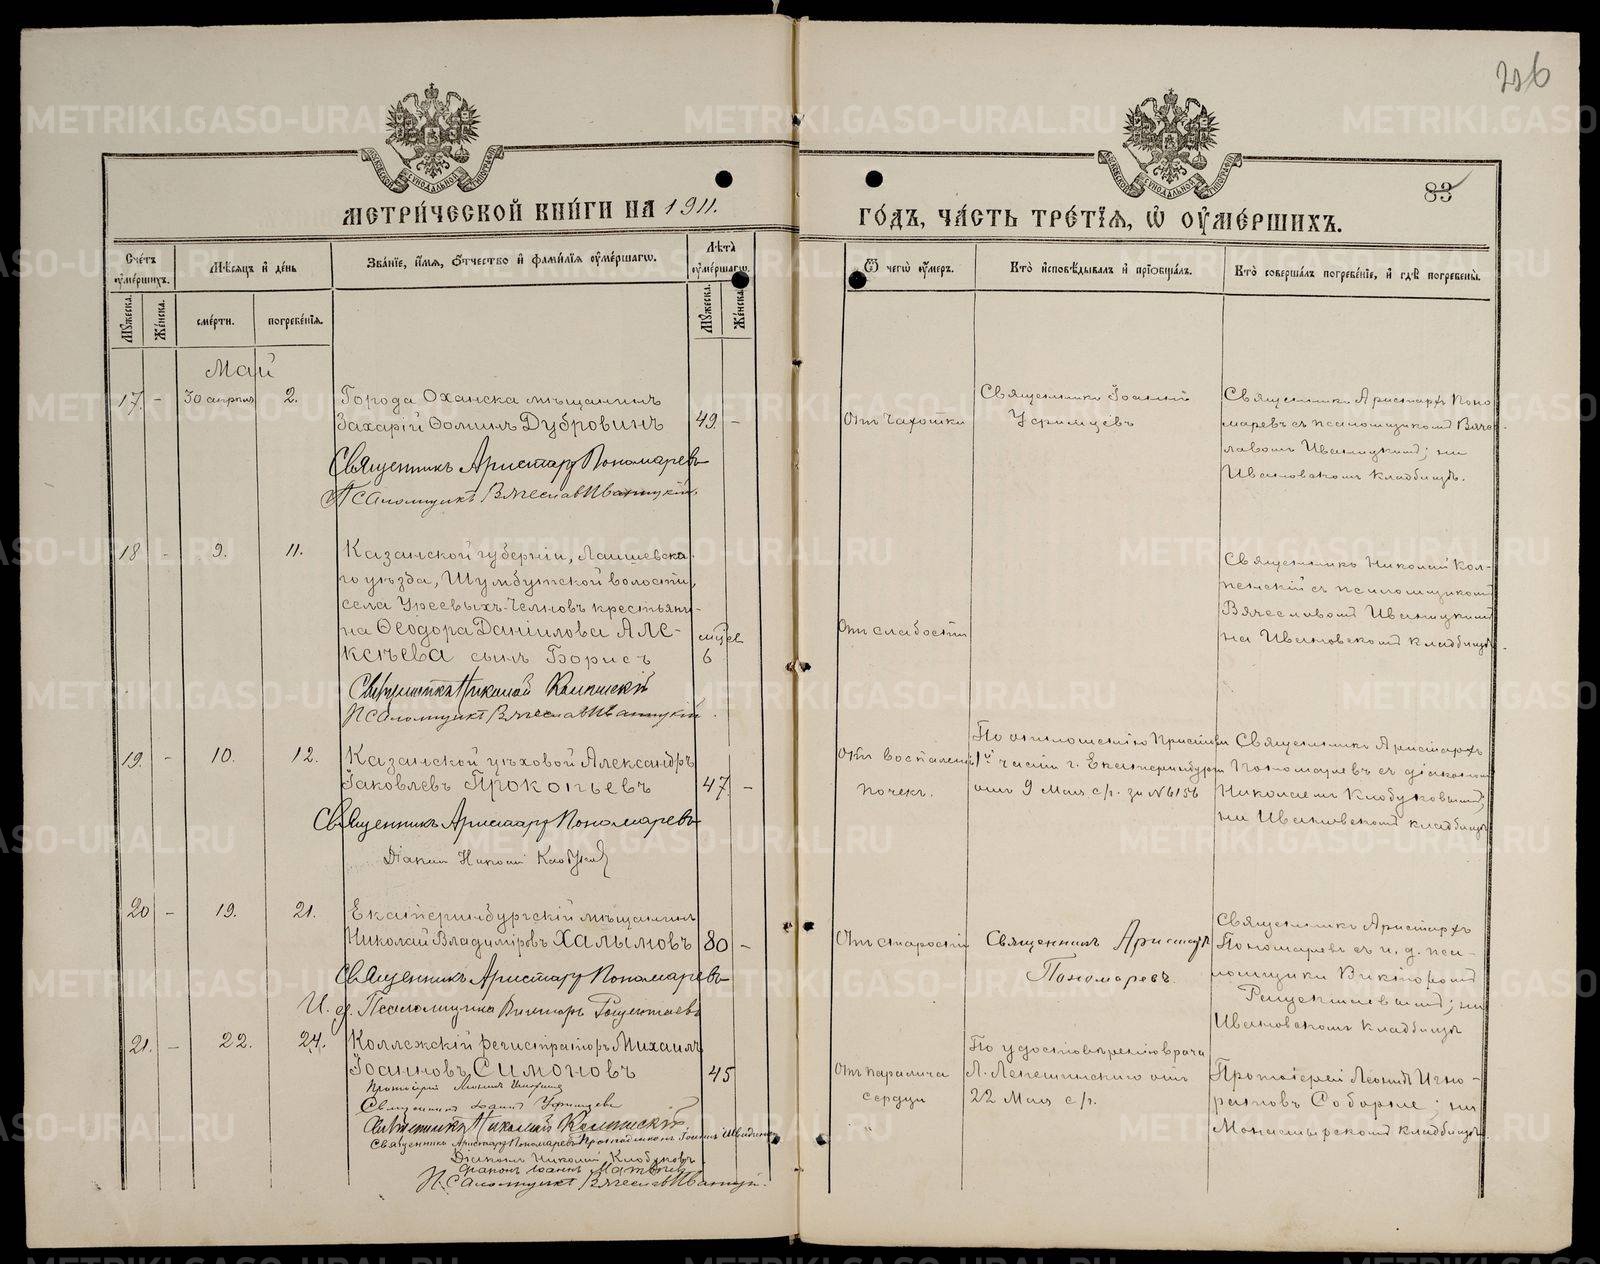 226
83
МЕТРИ́ЧЕСКОЙ КНИ́ГИ НА 1911.
ГО́ДЪ, ЧА́СТЬ ТРЕ́ТЇЯ, Ѡ҆ ОУ҆МЕ́РШИХЪ.
Сче́тъ оу҆ме́ршихъ.
Мѣ́сяцъ и҆ де́нь
Зва́нїе, и҆́мя, ѻ҆́тчество и҆ фами́лїя оу҆ме́ршагѡ.
Лѣ́та оу҆ме́ршагѡ.
Ѿ чегѡ̀ оу҆́меръ.
Кто̀ и҆сповѣ́дывалъ и҆ прїѻбща́лъ.
Кто̀ соверша́лъ погребе́нїе, и҆ гдѣ̀ погребены̀.
Мꙋ́жеска.
Же́нска.
сме́рти.
погребе́нїя.
Мꙋ́жеска.
Же́нска.
Май
17. - 30 апреля 2.
Города Оханска мѣщанинъ
Захарій Ѳоминъ Дубровинъ 49 -
Священникъ Аристархъ Пономаревъ
Псаломщикъ Вячеславъ Иваницкій.
От чахотки
Священникъ Іоаннъ
Уфимцевъ
Священникъ Аристархъ Поно-
маревъ съ псаломщикомъ Вяче-
славомъ Иваницкимъ; на
Ивановскомъ кладбищѣ.
18 - 9. 11.
Казанской губерніи, Лаишевска-
го уѣзда, Шумбутской волости,
села Уреевыхъ-Челновъ крестьяни-
на Ѳеодора Даніилова Але-
ксѣева сынъ Борисъ
6
Священникъ Николай
Псаломщикъ Вячеславъ Иваницкій.
От слабости
Священникъ Николай
съ псаломщикомъ
Вячеславомъ Иваницкимъ
на Ивановскомъ кладбищѣ.
19. - 10. 12.
Казанской цѣховой Александръ
Іаковлевъ Прокопьевъ 47 -
Священникъ Аристархъ Пономаревъ
Діаконъ Николай Клобуковъ
От воспаленія
почекъ.
По отношенію Пристава
1й части г. Екатеринбурга
отъ 9 Мая с/г. за № 6156
Священникъ Аристархъ
Пономаревъ съ діакономъ
Николаемъ Клобуковымъ;
на Ивановскомъ кладбищѣ
20 - 19. 21.
Екатеринбургскій мѣщанинъ
Николай Владиміровъ Халымовъ 80 -
Священникъ Аристархъ Пономаревъ
И. д. Псаломщика Викторъ
От старости
Священникъ Аристархъ
Пономаревъ.
Священникъ Аристархъ
Пономаревъ съ и. д. пса-
ломщика Викторомъ
на
Ивановскомъ кладбищѣ
21. - 22. 24.
Коллежскій регистраторъ Михаилъ
Іоанновъ Симоновъ 45
Протоіерей
Священникъ Іоаннъ Уфимцевъ
Священникъ Николай
Священникъ Аристархъ Пономаревъ Протодіаконъ Іоаннъ
Діаконъ Николай Клобуковъ
Діаконъ Іоаннъ
Псаломщикъ Вячеславъ Иваницкій.
От паралича
сердца
По удостовѣренію врача
Л. Лепешинскаго отъ
22 Мая с/г.
Протоіерей Леонидъ Игно-
ратовъ Соборне; на
Монастырскомъ кладбищѣ
METRIKI.GASO-URAL.RU